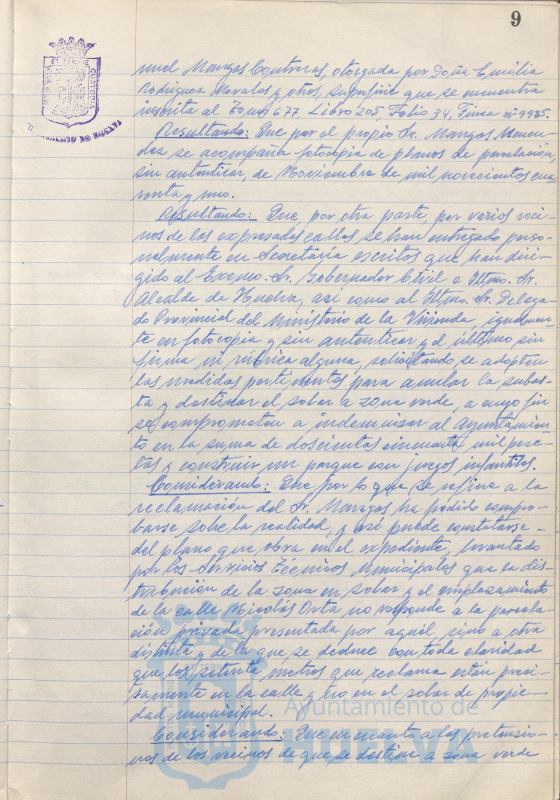 9
nuel Mangas Contreras, otorgada por Doña Emilia
Rodriguez Navalos y otros, superficie que se encuentra
inscrita al Tomo 677, Libro 205, Folio 34, Finca nº 9985.
Resultando: Que por el propio Sr. Mangas Menen-
dez se acompaña fotocopia de planos de parcelación,
sin autenticar, de Noviembre de mil novecientos cua
renta y uno.
Resultando: Que, por otra parte, por varios veci-
nos de las expresadas calles se han entregado perso-
nalmente en Secretaria escritos que han diri-
gido al Excmo. Sr. Gobernador Civil e Iltmo. Sr.
Alcalde de Huelva, asi como al Iltmo. Sr. Delega-
do Provincial del Ministerio de la Vivienda, igualmen
te en fotocopia y sin autenticar y el último sin
firma ni rúbrica alguna, solicitando se adopten
las medidas pertinentes para anular la subas-
ta y destinar el solar a zona verde, a cuyo fin
se comprometen a indemnizar al Ayuntamien-
to en la suma de doscientas cincuenta mil pese-
tas y construir un parque con juegos infantiles.
Considerando: Que por lo que se refiere a la
reclamación del Sr. Mangas ha podido compro-
barse sobre la realidad, y asi puede constatarse
del plano que obra en el expediente, levantado
por los Servicios Técnicos Municipales que la dis-
tribución de la zona en solar y el emplazamiento
de la calle Nicolás Orta no responde a la parcela
ción privada presentada por aquél, sino a otra
distinta y de la que se deduce con toda claridad
que los setenta metros que reclama están preci-
samente en la calle y no en el solar de propie-
dad municipal.
Ayuntamiento de
HUELVA
Considerando: Que en cuanto a las pretensio-
nes de los vecinos de que se destine a zona verde